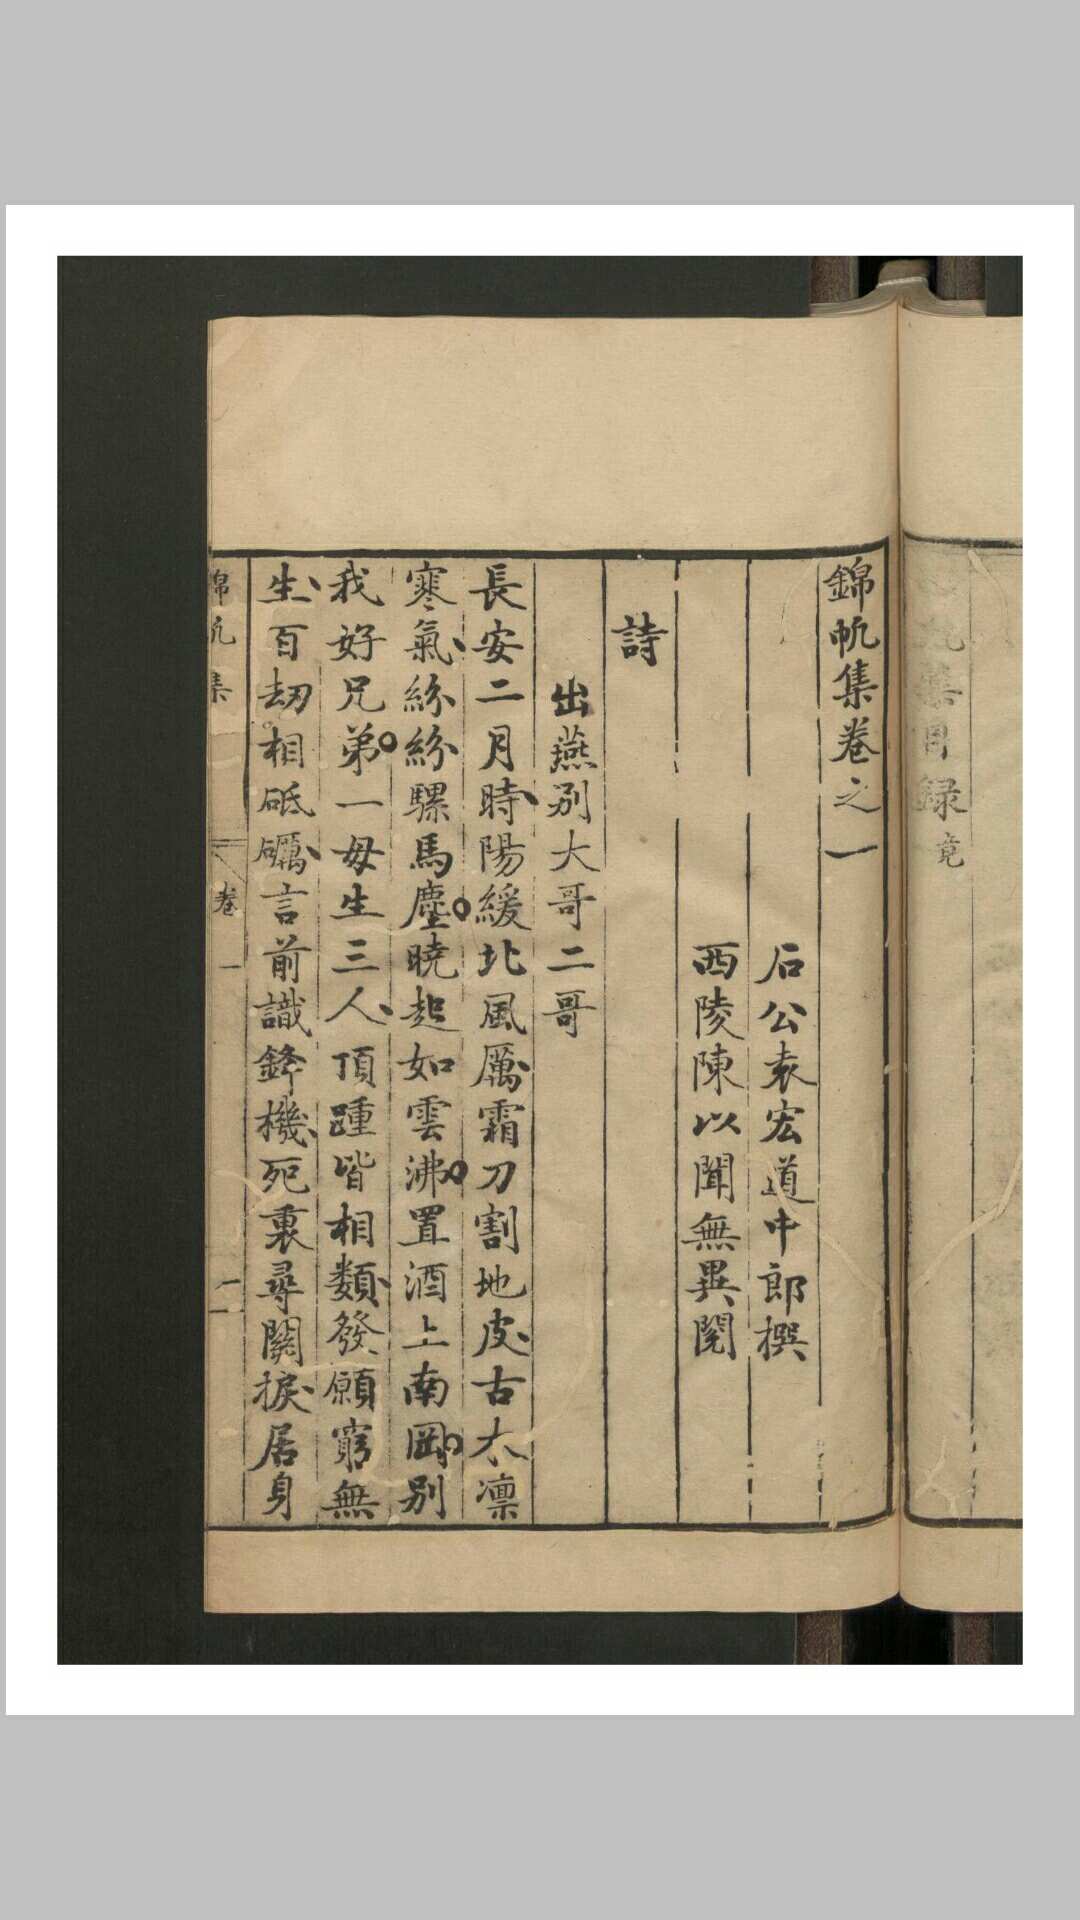 集目錄竟
錦帆集卷之一
石公袁宏道中郎撰
西陵陳以聞無異閱
詩
出燕別大哥二哥
長安二月時陽緩北風厲霜刀割地皮古木凛
寒氣紛紛騾馬塵曉起如雲沸置酒上南岡別
我好兄弟一母生三人頂踵皆相類發願窮無
生百劫相砥礪言前識鋒機死裏尋關捩居身
錦帆集 卷一 一